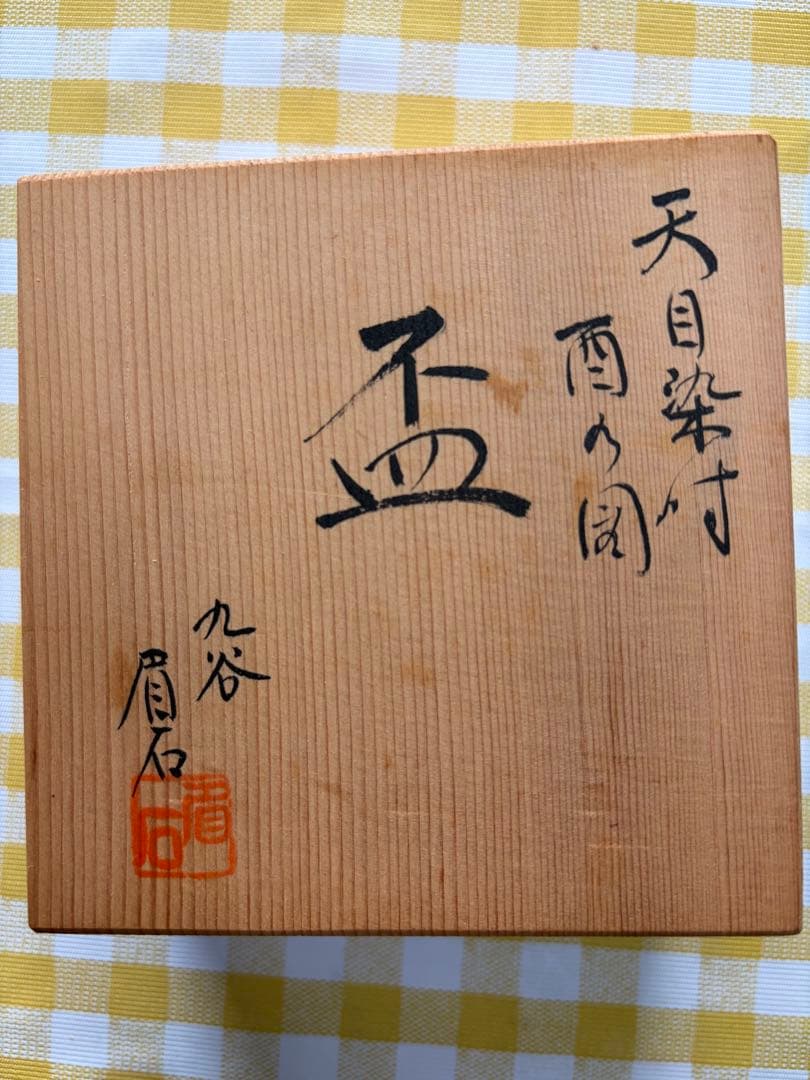 天目染付
酉の図
盃
九谷
眉石
眉石